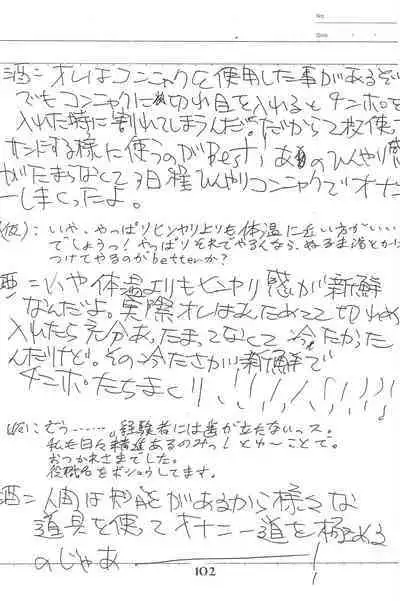 No.
Date
酒=オレはコンニャクを使用した事があるぞい
でもコンニャクに切れ目を入れるとチンポを
入れた時に割れてしまうんだ。だから2枚使って
サンドする様に使うのがBest!あのひんやり感
がたまらなくて3日程ひんやりコンニャクでオナニ
ーしまくったよ。
(仮):いや、やっぱりヒンヤリよりも体温に近い方がいい
でしょうっ!やっぱりそれでやるくなら、ぬるま湯とかに
つけてやるのがbetterか?
酒=いや体温よりもヒンヤリ感が新鮮
なんだよ。実際オレはあたためて切れ目
入れたら充分あたたまってなくて冷たかった
んだけど。その冷たさが新鮮で
チンポたちまくり!!
(仮):むぅ……。経験者には歯が立たないっス。
私も日々精進あるのみっ!とゆーことで。
おつかれさまでした。
役職名をボシュウしてます。
酒=人間は知能があるから様々な
道具を使てオナニー道を極める
のじゃあ――!
102